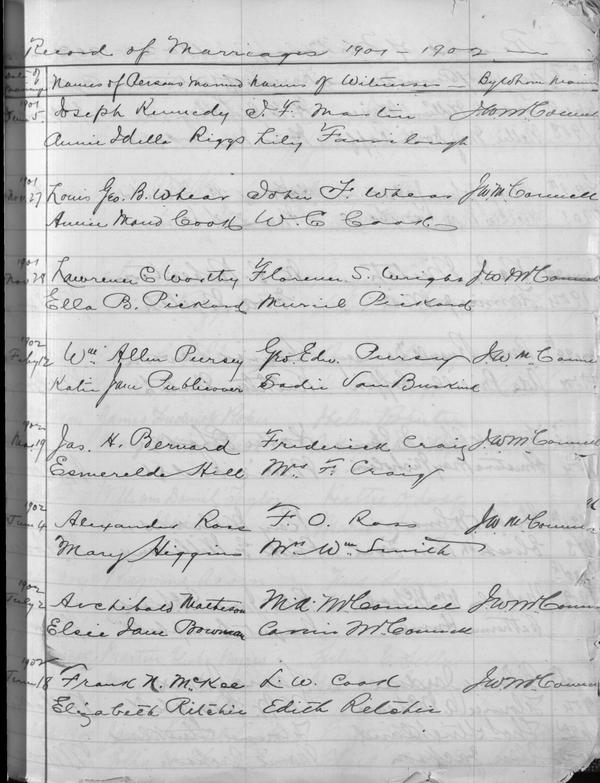 Record of Marriages 1901 - 1902
Date of Marriage Names of Persons Married Names of Witnesses By Whom
1901
June 5 Joseph Kennedy J. F. Martin J.W. McConnell
Annie Idella Riggs Lily
1901
Nov. 27 Louis Geo. B. Whear John F. Whear J.W. McConnell
Annie Maud Cook W. C. Cook
1901
Nov 28 Lawrence C Worthy Florence S. Wright J.W. McConnell
Ella B. Pickard Muriel Pickard
1902
Feby 12 Wm Allen Pursey Geo Edw. Pursey J.W. McConnell
Katie Jane Publicover Sadie Van Buskirk
1902
19 Jas. H. Bernard Frederick Craig J.W. McConnell
Esmerelda Hill Mrs F. Craig
1902
June 4 Alexander Ross F. O. Ross J.W. McConnell
Mary Higgins Mrs Wm Smith
1902
July 2 Archibald Matheson McConnell J.W. McConnell
Elsie Jane Bowman Cassie McConnell
1902
June 18 Frank N. McKee L. W. Cook J.W. McConnell
Elizabeth Ritchie Edith Retchie